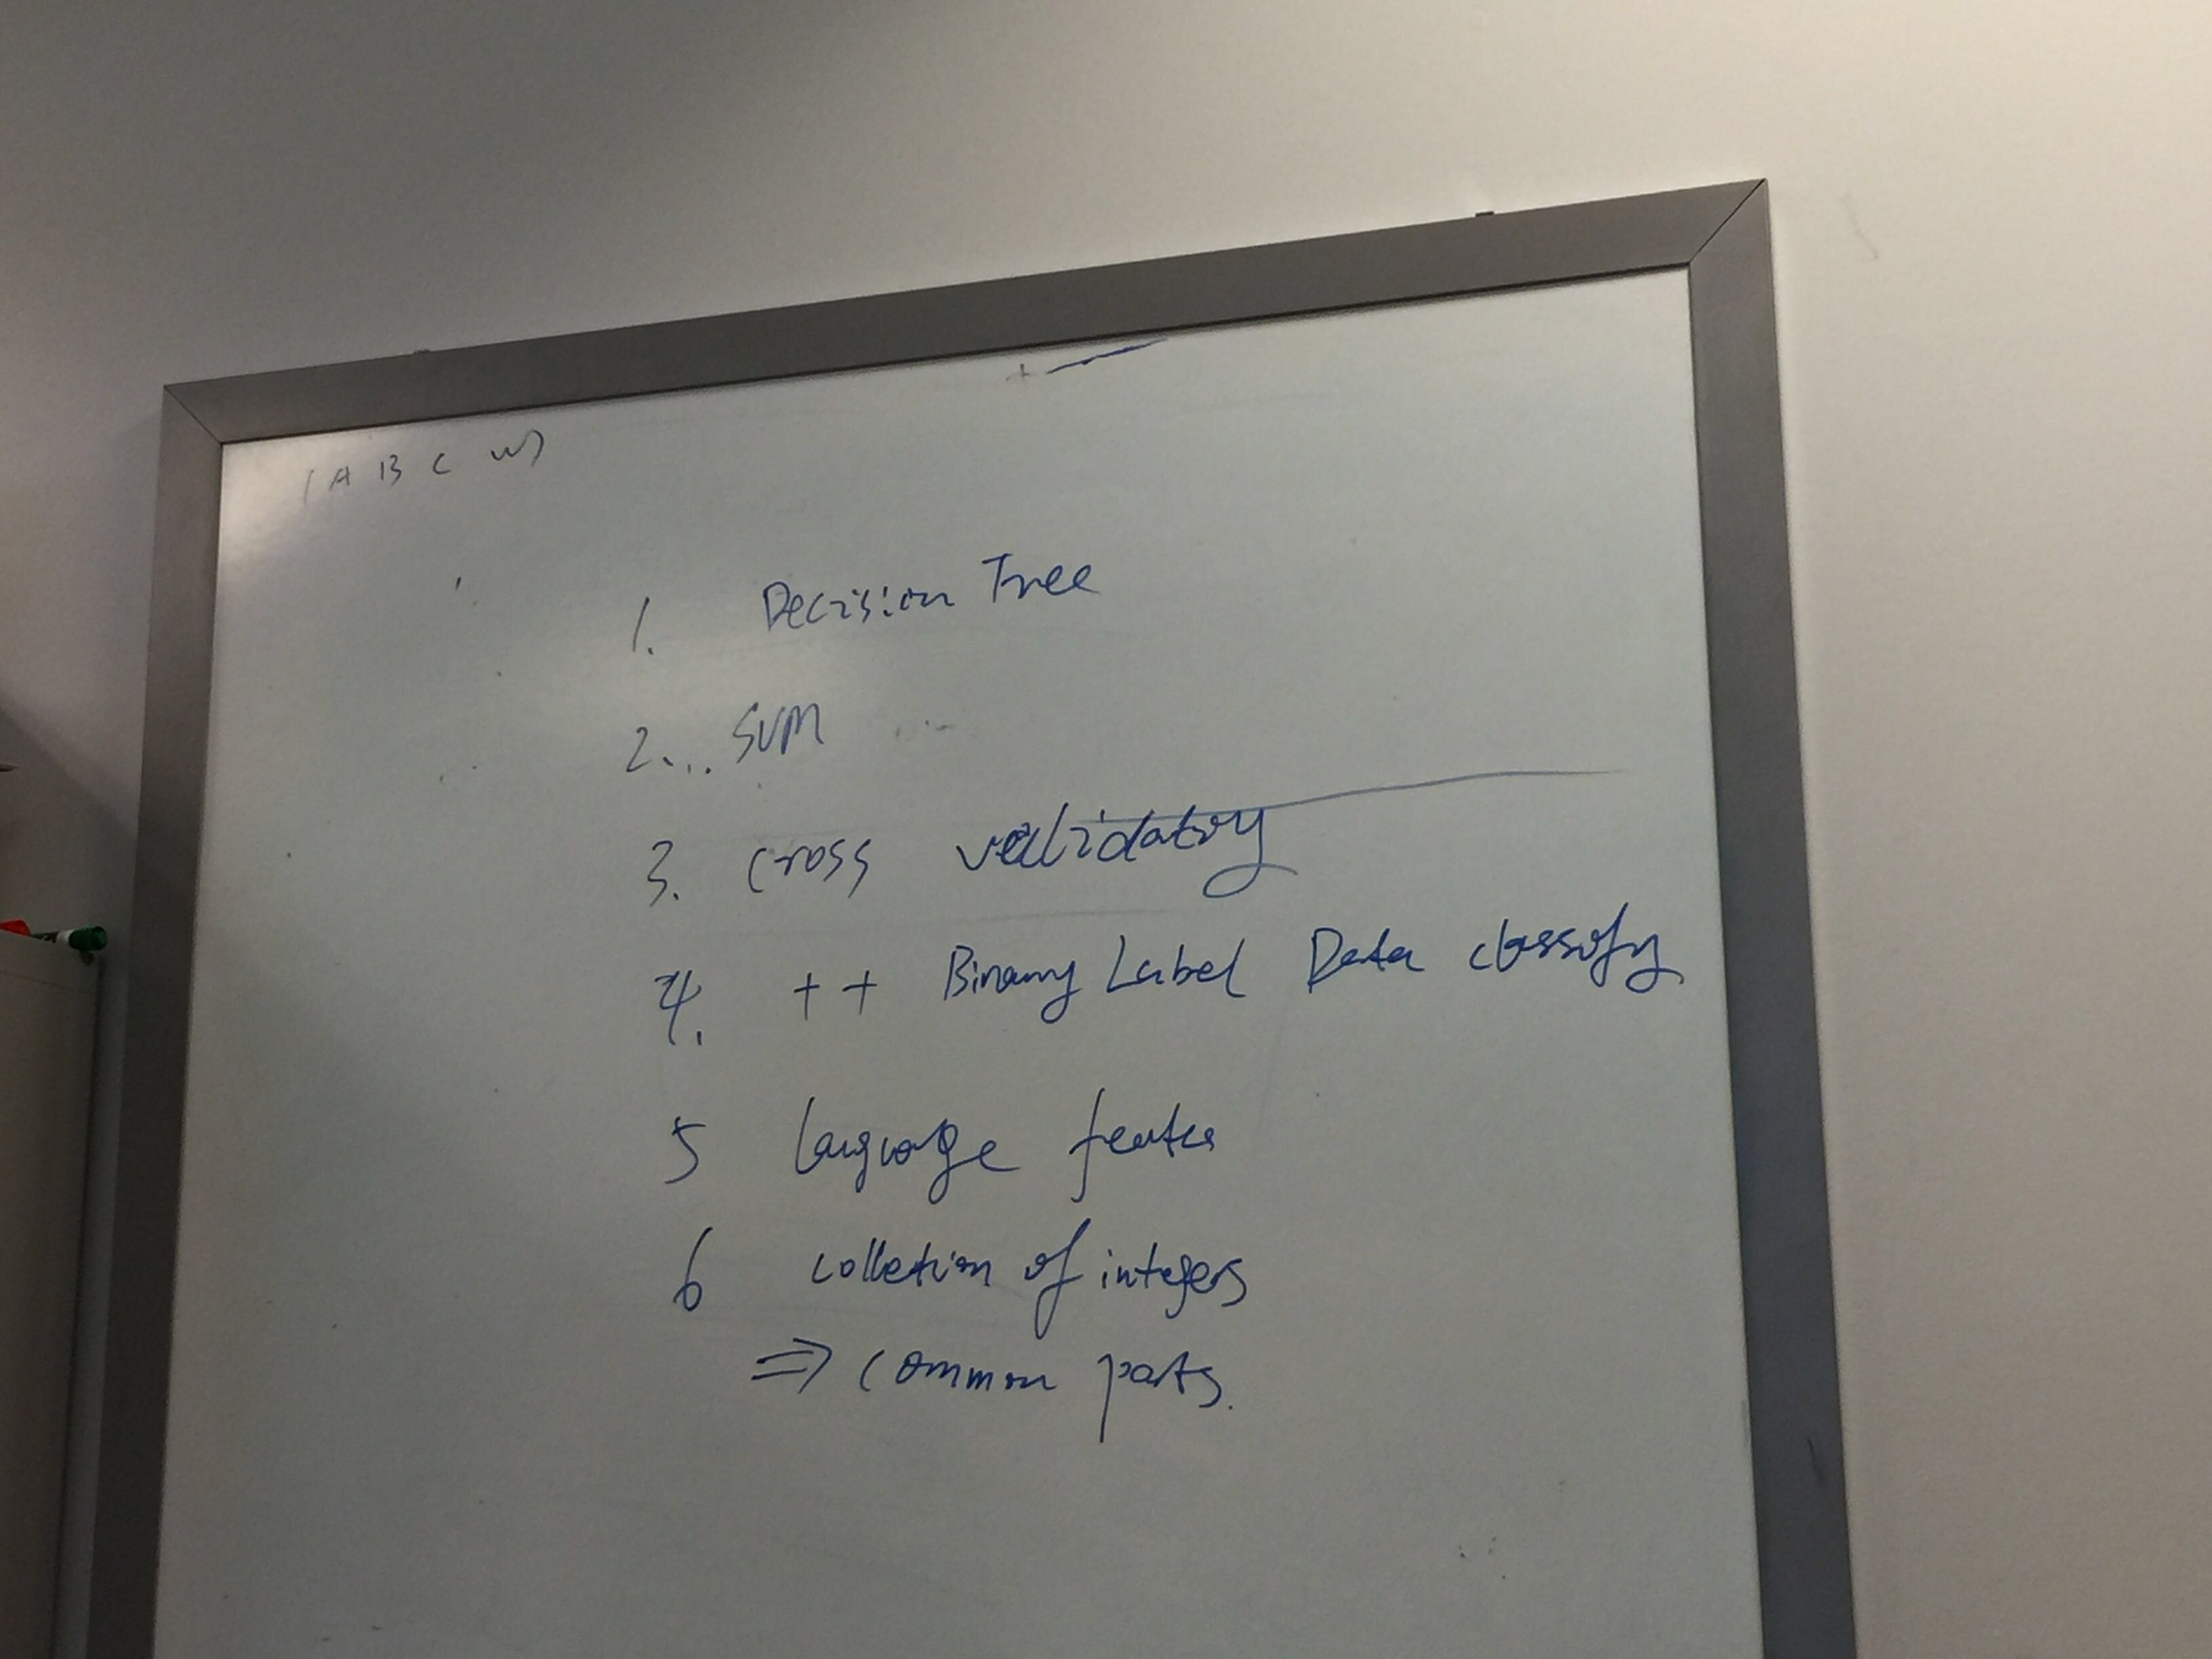 (A B C W)
1. Decision Tree
2... SVM
3. cross validatory
4. ++ Binary Label Data classify
5 language featue
6 colletion of integers
⇒ common parts.